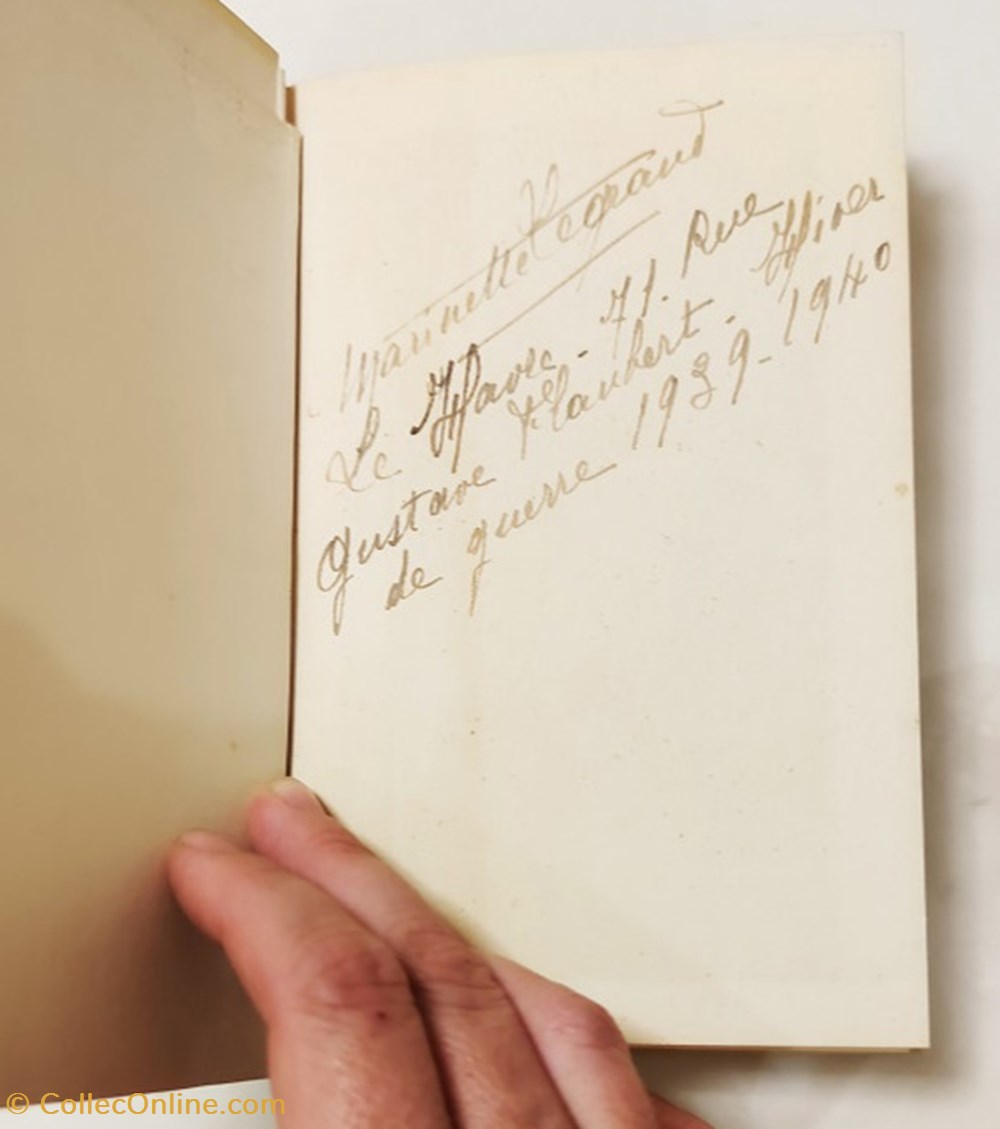 Marinette Legrand
Le Havre - 71. Rue
Gustave Flaubert. Hiver
de guerre 1939-1940
© CollecOnline.com